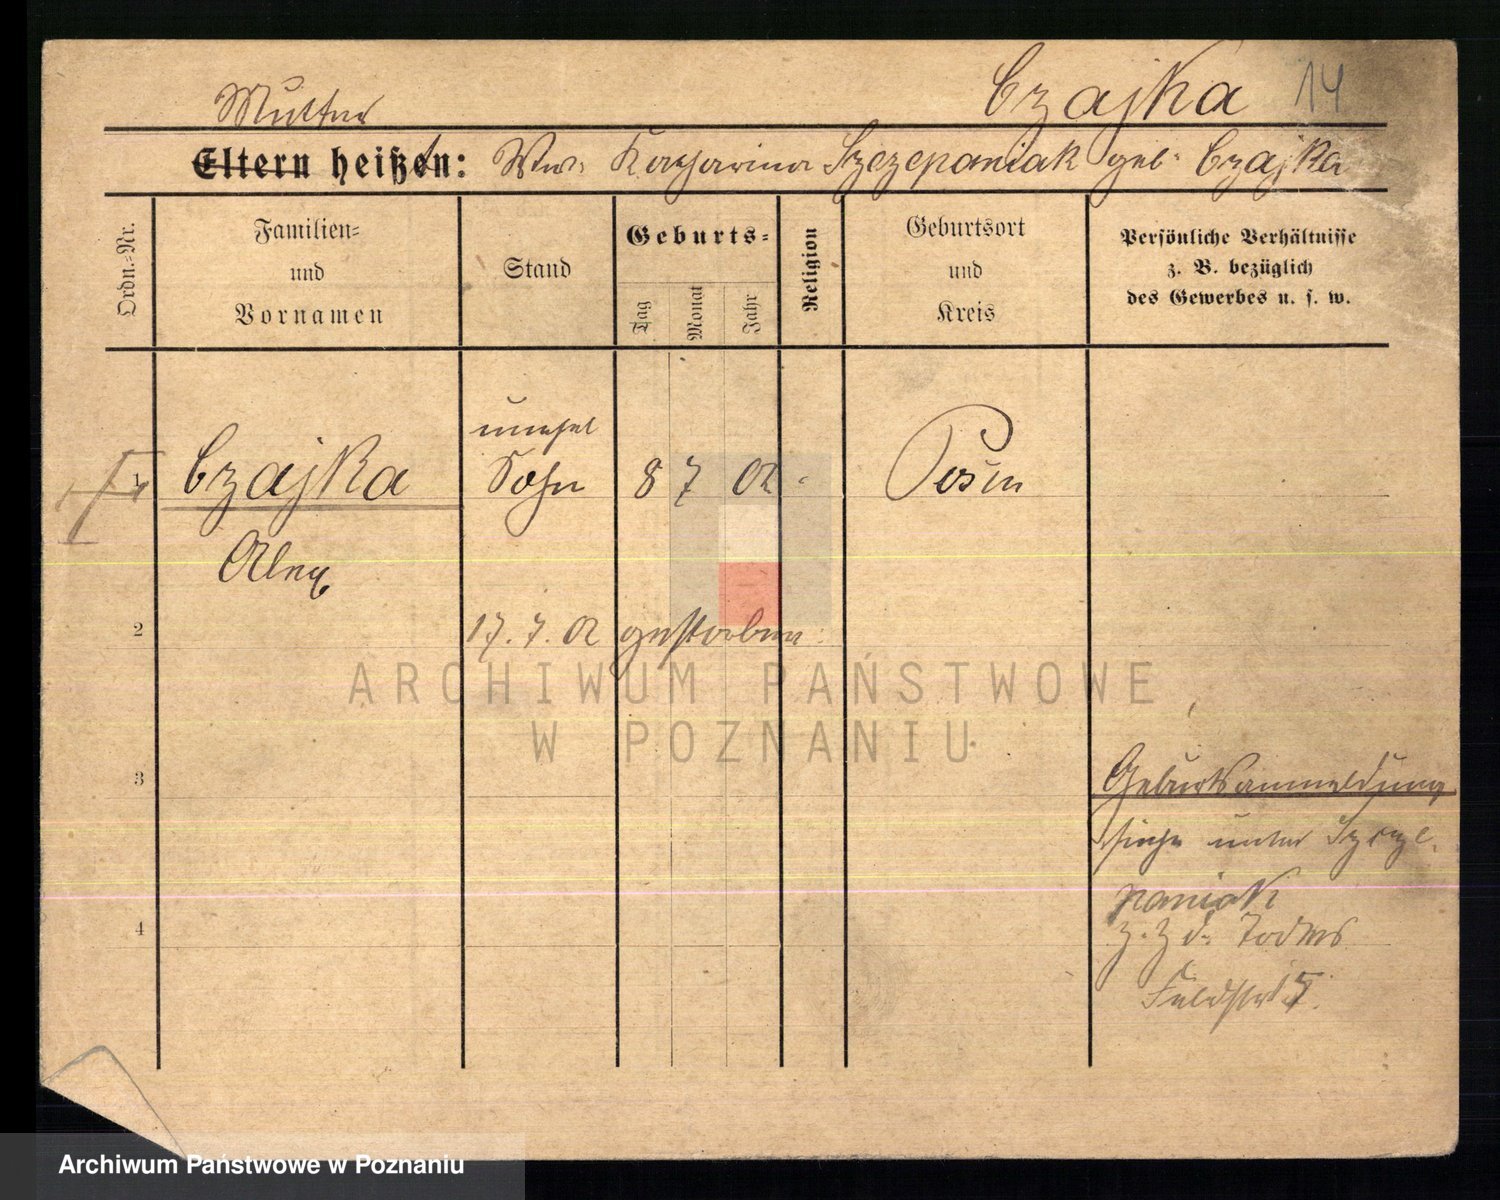 Czajka 14
Mutter
Eltern heißt: Ww. Katharina Szczepaniak geb. Czajka
Ordn.-Nr.
Familien-
und
Vornamen
Stand
Geburts-
Tag
Monat
Jahr
Religion
Geburtsort
und
Kreis
Persönliche Verhältnisse
z. B. bezüglich
des Gewerbes u. s. w.
unehel
1 Czajka Sohn 8 7 02 Posen
Alex
2 17. 7. 02 gestorben
ARCHIWUM PAŃSTWOWE
W POZNANIU
3 Geburtsanmeldung
siehe unter Szcze-
paniak
4 z. Z. d. Todes
Feldstr 15.
Archiwum Państwowe w Poznaniu